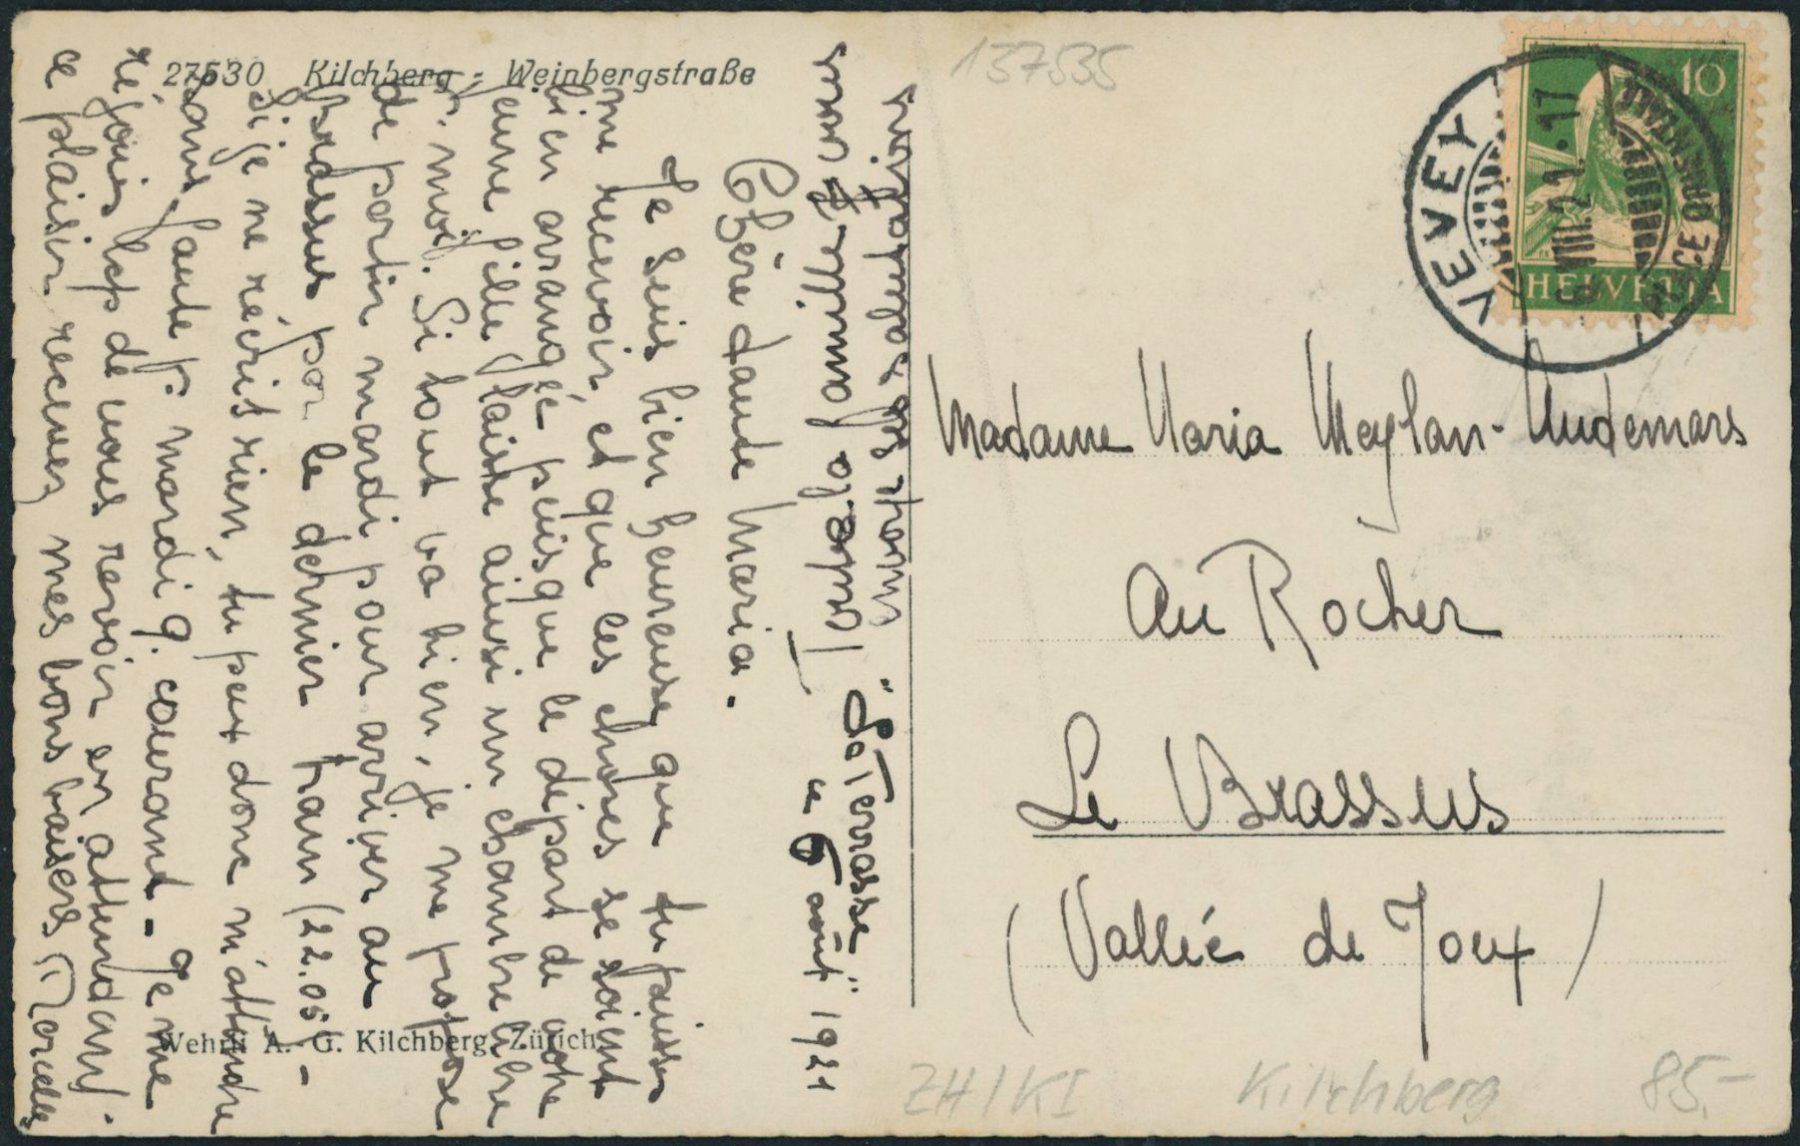 27530 Kilchberg - Weinbergstraße
137535
10
HELVETIA
VEVEY
6.VIII.21.-17
"La Terrasse"
ce 6 août 1921
Chère tante Maria.
Je suis bien heureuse que tu puisses
me recevoir, et que les choses se soient
bien arrangé puisque le départ de votre
jeune fille laisse ainsi un chambre libre
p. moi. Si tout va bien, je me propose
de partir mardi pour arriver au
Brassus par le dernier train (22.05) -
Si je ne récris rien, tu peux donc m'attendre
sans faute p. mardi 9. courant - Je me
réjouis de vous revoir en attendant
ce plaisir recevez mes bons baisers Marcelle
Toute la famille vous
salutations
Madame Maria Meylan-Audemars
Au Rocher
Le Brassus
(Vallée de Joux)
Wehrli A.-G. Kilchberg, Zürich
ZH/KI Kilchberg 85.-